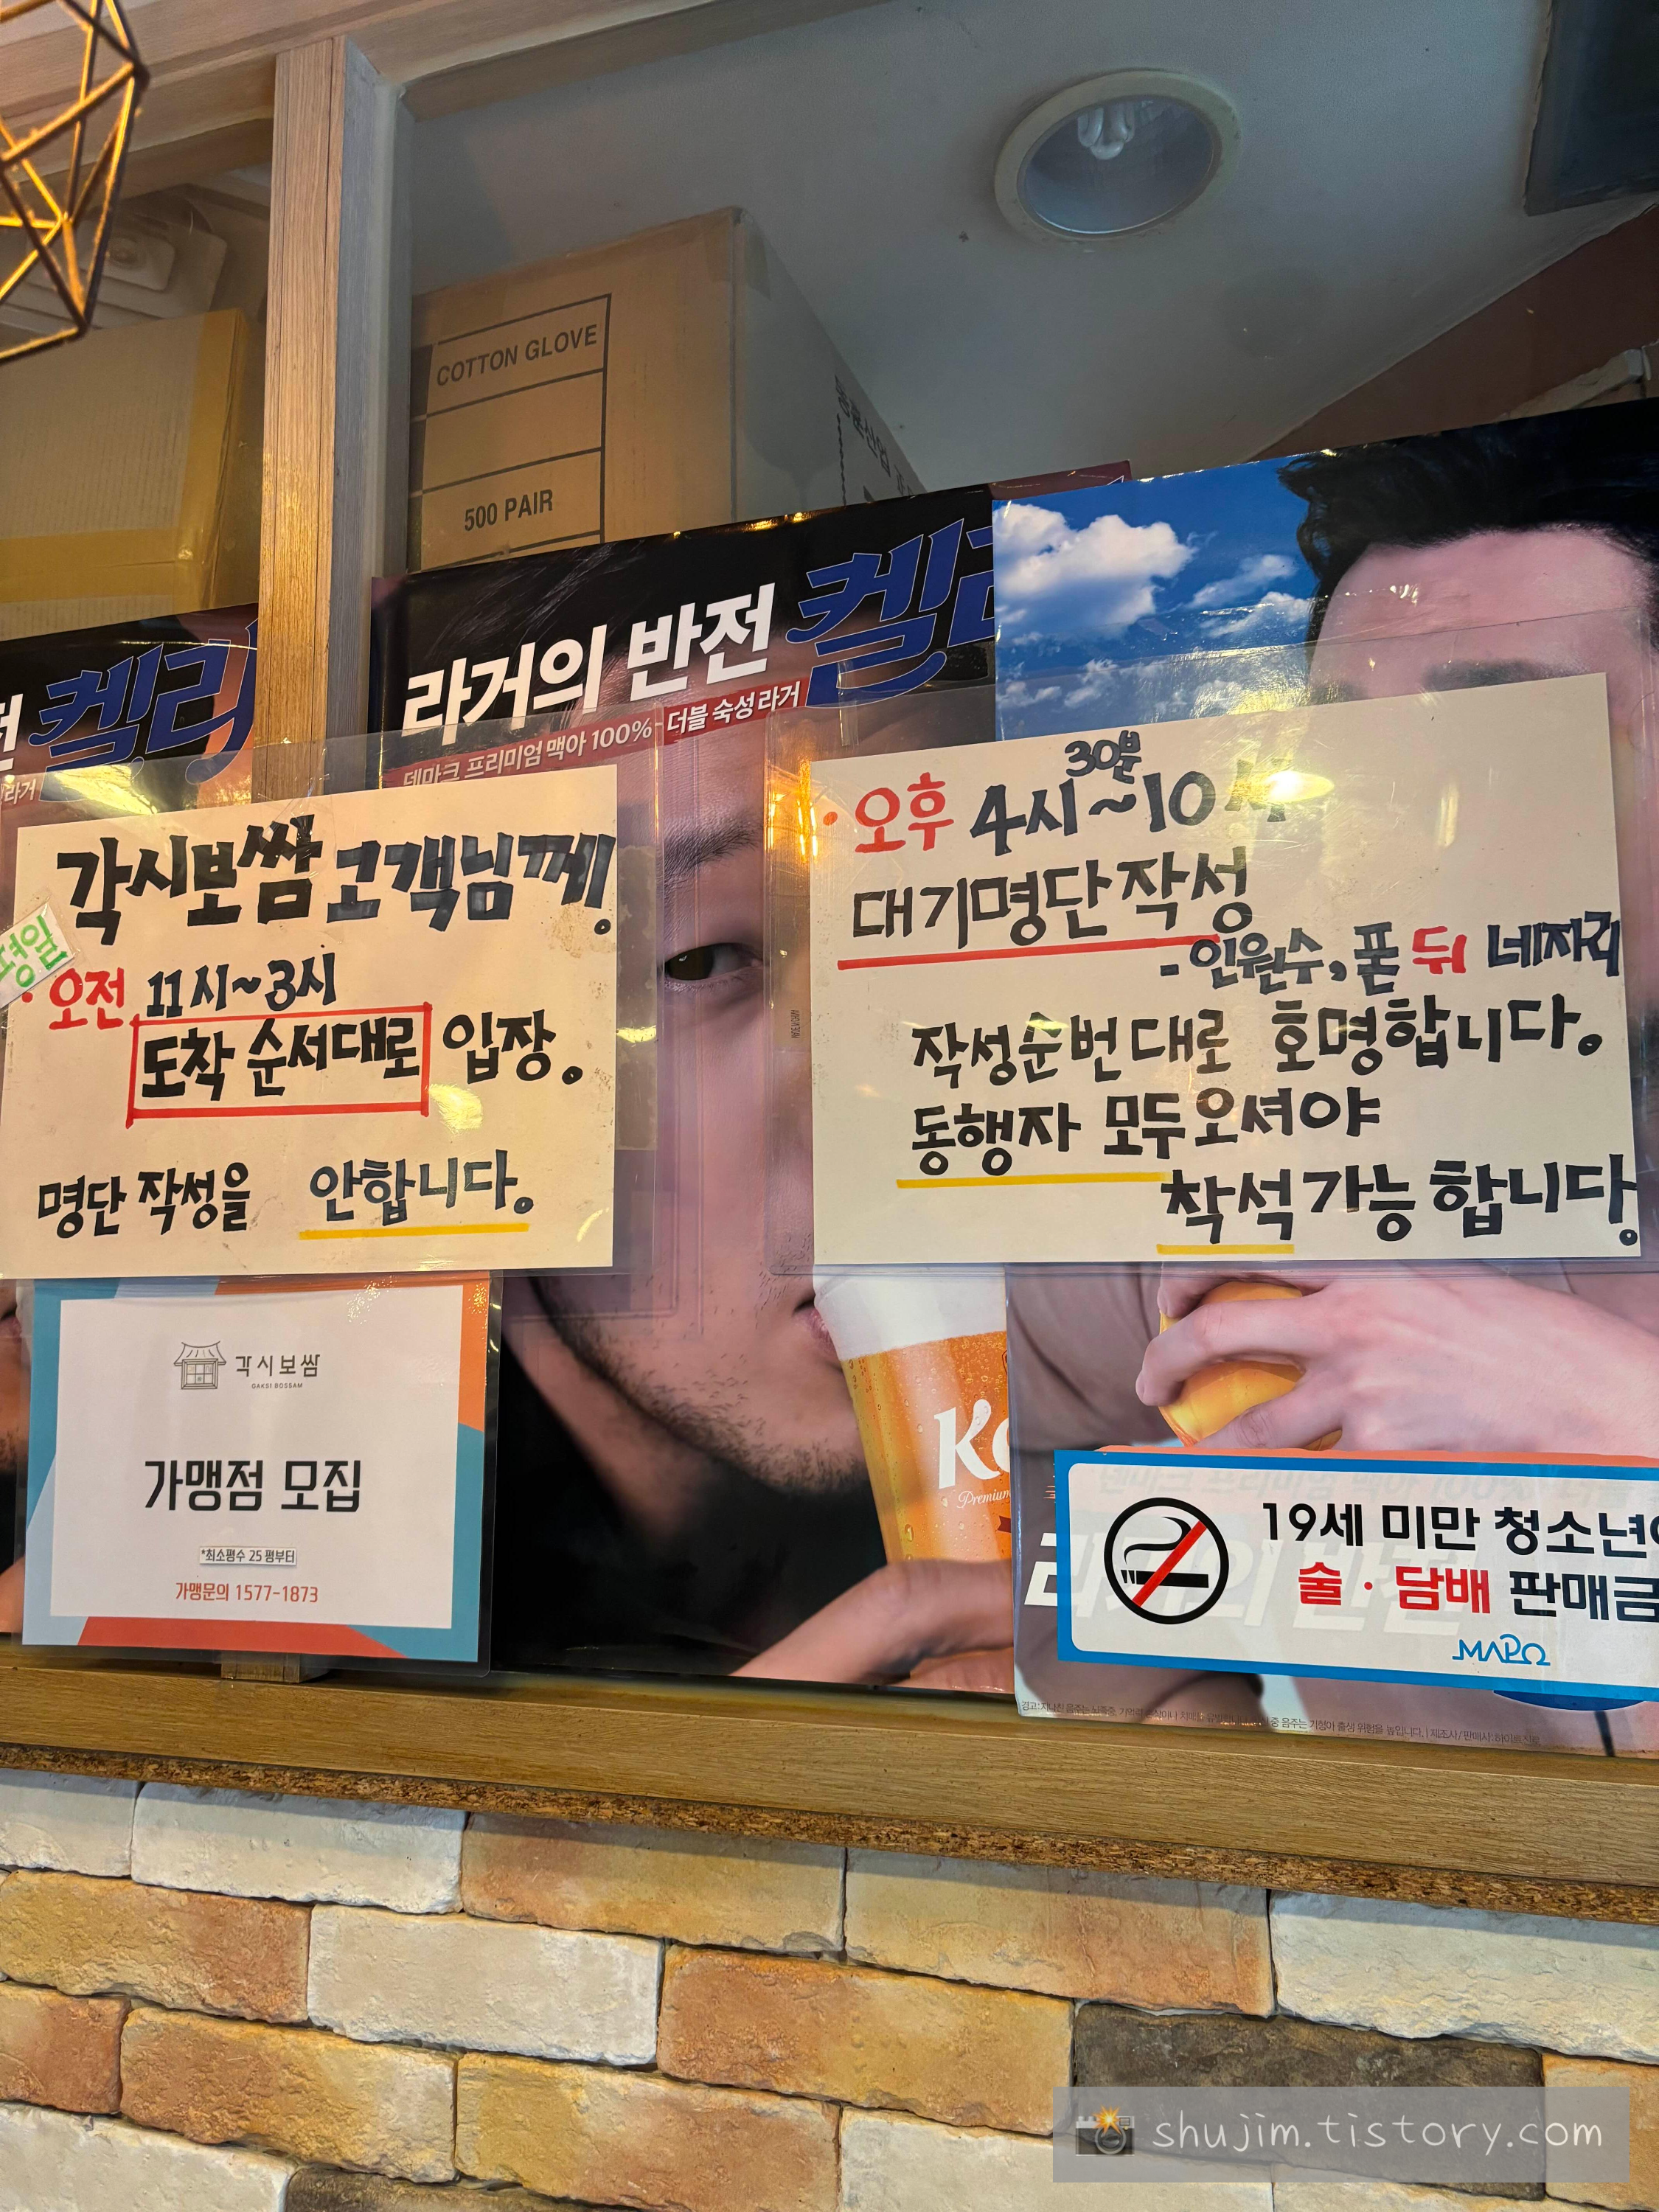 COTTON GLOVE
500 PAIR
켈리
라거
라거의 반전
덴마크 프리미엄 맥아 100%-더블 숙성 라거
각시보쌈 고객님께!
평일
· 오전 11시~3시
도착 순서대로 입장。
명단 작성을 안합니다。
· 오후 4시 30분 ~10시
대기명단작성
- 인원수, 폰 뒤 네자리
작성순번대로 호명합니다。
동행자 모두오셔야
착석가능합니다!
각시보쌈
GAKSI BOSSAM
가맹점 모집
*최소평수 25 평부터
가맹문의 1577-1873
Premium
19세 미만 청소년
술·담배 판매금
MAPO
라거의 반전
shujim.tistory.com